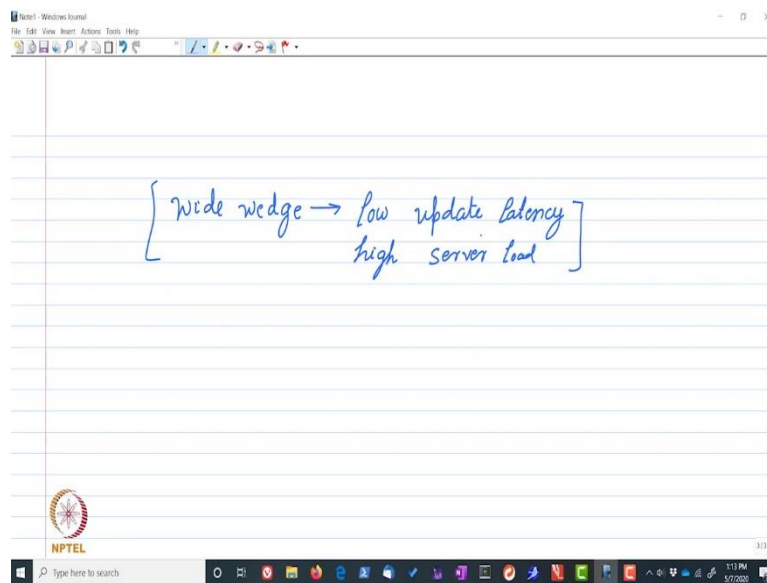 Note1 - Windows Journal
File Edit View Insert Actions Tools Help
wide wedge → low update latency
high server load
NPTEL
3/3
Type here to search
1:13 PM
5/7/2020